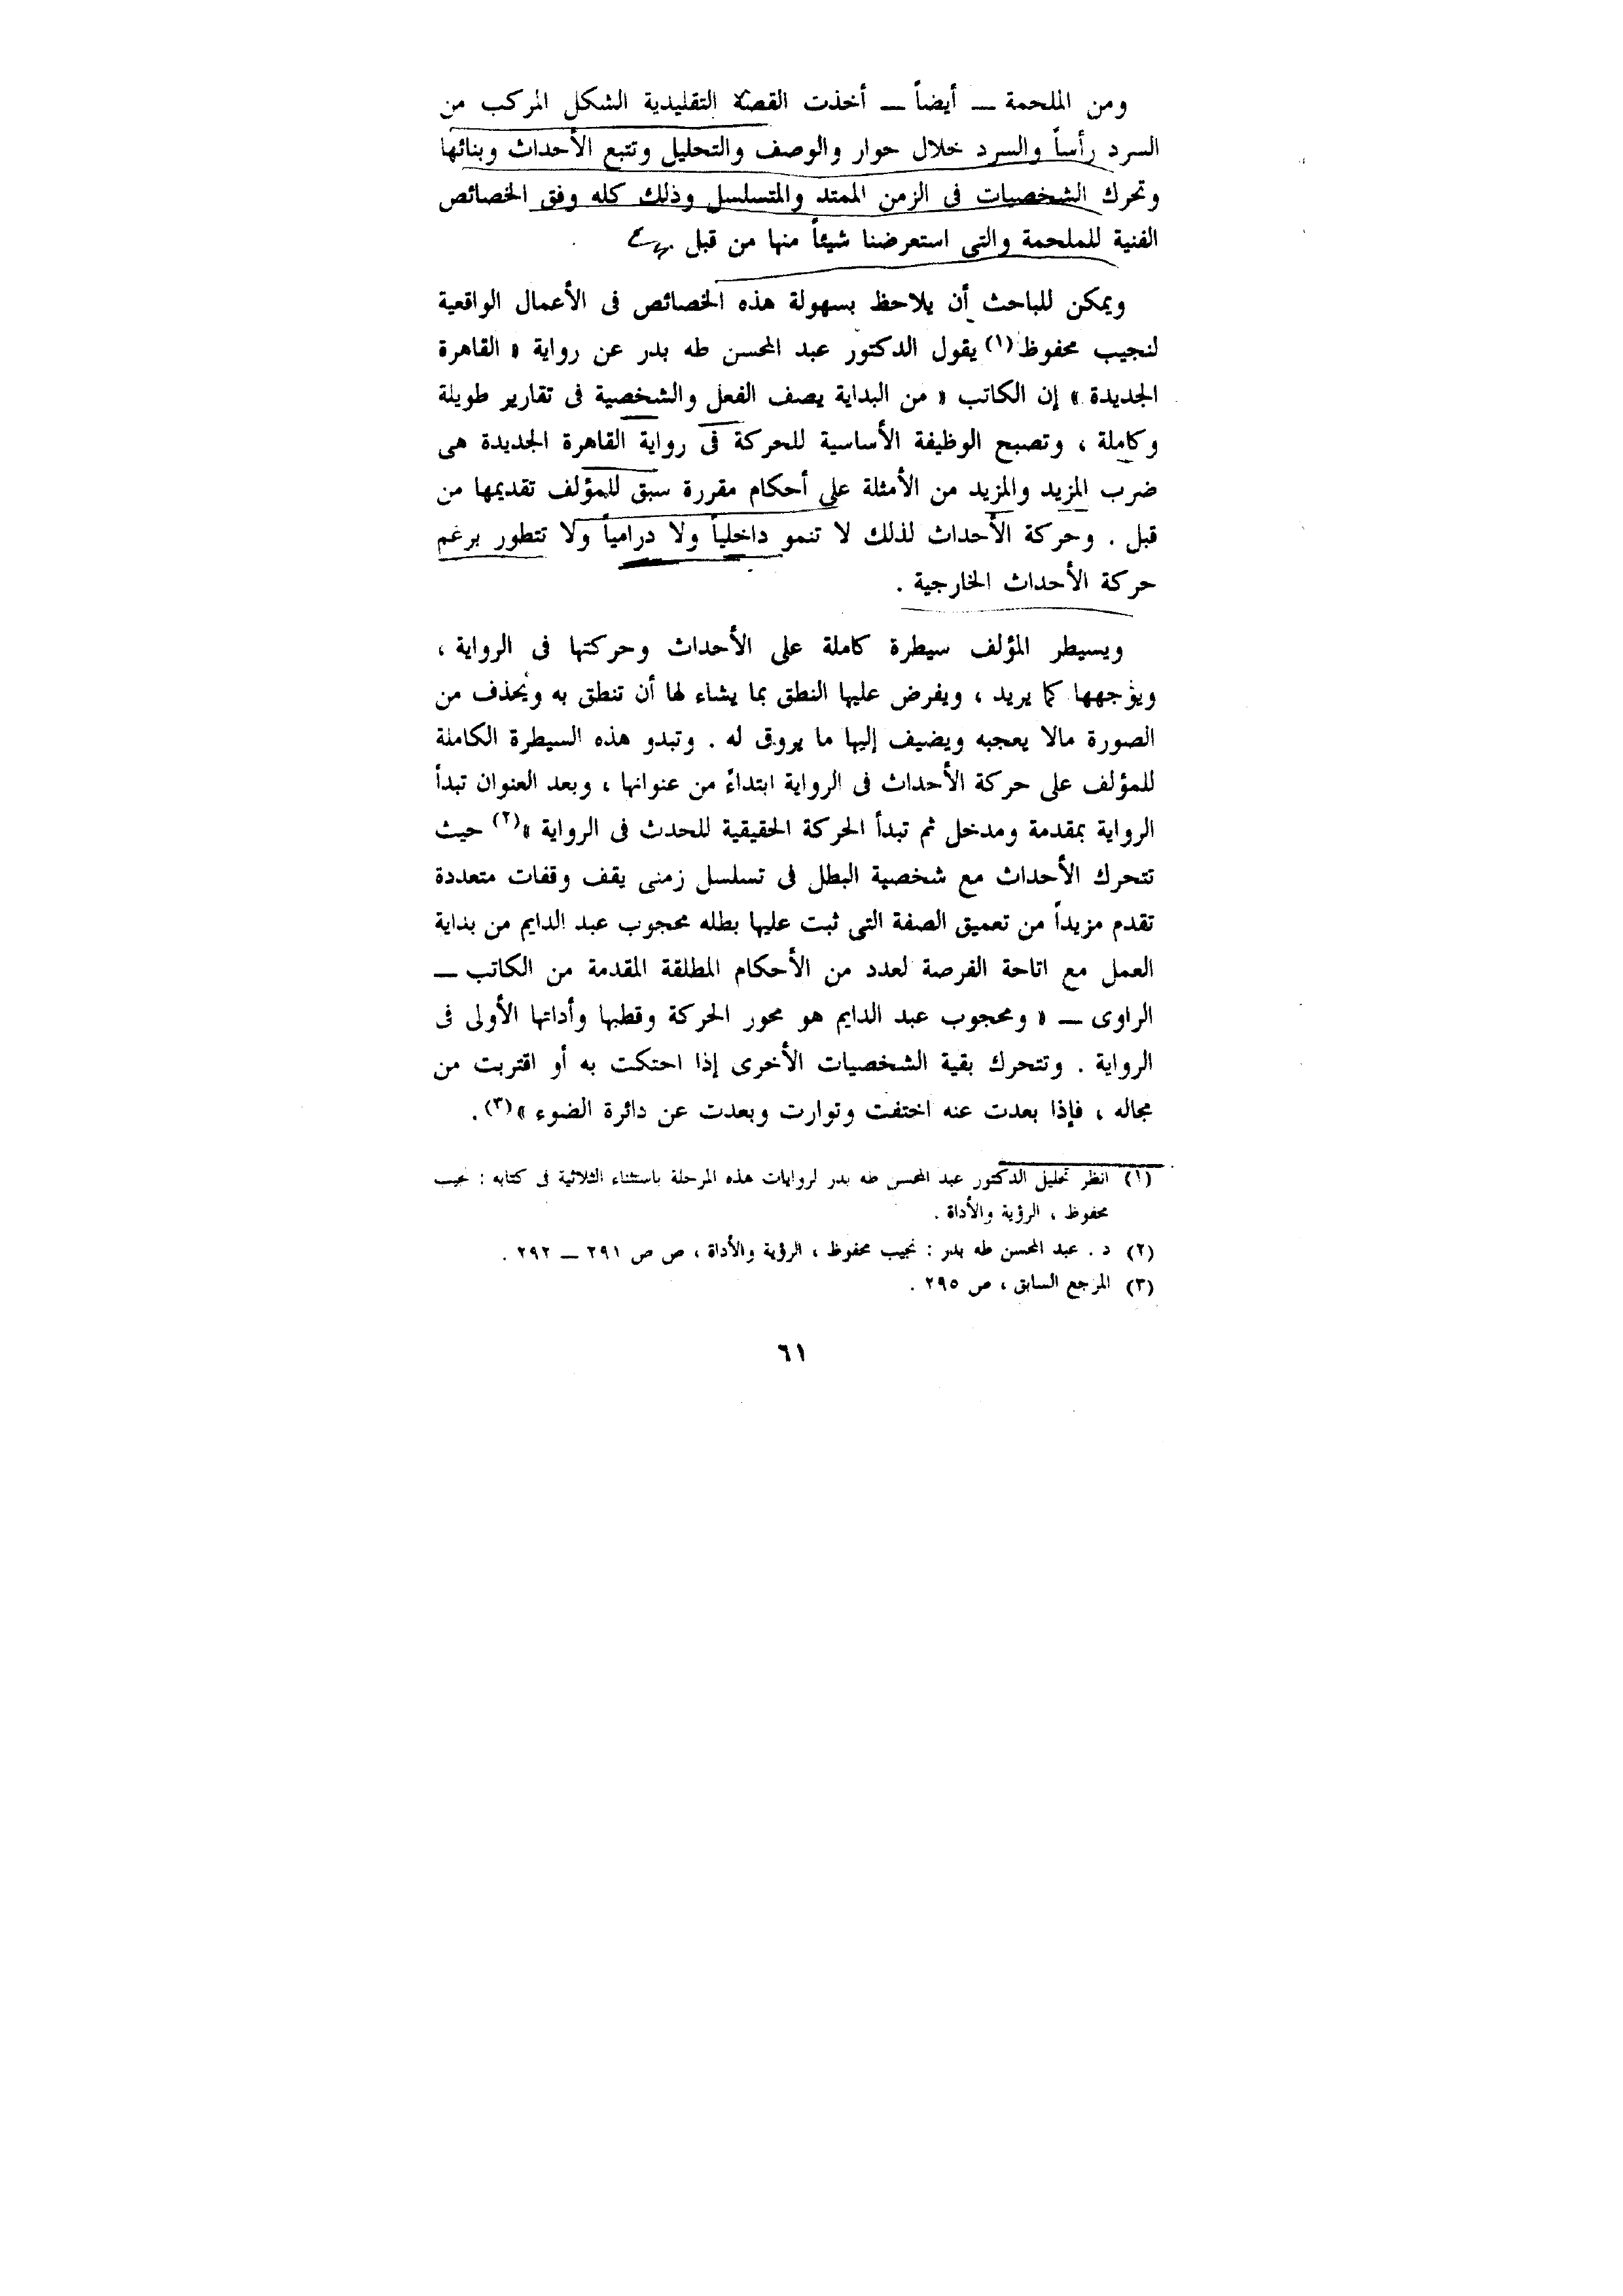 ومن الملحمة — أيضاً — أخذت القصة التقليدية الشكل المركب من
السرد رأساً والسرد خلال حوار والوصف والتحليل وتتبع الأحداث وبنائها
وتحرك الشخصيات فى الزمن الممتد والمتسلسل وذلك كله وفق الخصائص
الفنية للملحمة والتى استعرضنا شيئاً منها من قبل
ويمكن للباحث أن يلاحظ بسهولة هذه الخصائص فى الأعمال الواقعية
لنجيب محفوظ (١) يقول الدكتور عبد المحسن طه بدر عن رواية « القاهرة
الجديدة » إن الكاتب « من البداية يصف الفعل والشخصية فى تقارير طويلة
وكاملة ، وتصبح الوظيفة الأساسية للحركة فى رواية القاهرة الجديدة هى
ضرب المزيد والمزيد من الأمثلة على أحكام مقررة سبق للمؤلف تقديمها من
قبل . وحركة الأحداث لذلك لا تنمو داخلياً ولا درامياً ولا تتطور برغم
حركة الأحداث الخارجية .
ويسيطر المؤلف سيطرة كاملة على الأحداث وحركتها فى الرواية ،
ويوجهها كما يريد ، ويفرض عليها النطق بما يشاء لها أن تنطق به ويحذف من
الصورة مالا يعجبه ويضيف إليها ما يروق له . وتبدو هذه السيطرة الكاملة
للمؤلف على حركة الأحداث فى الرواية ابتداءً من عنوانها ، وبعد العنوان تبدأ
الرواية بمقدمة ومدخل ثم تبدأ الحركة الحقيقية للحدث فى الرواية »(٢) حيث
تتحرك الأحداث مع شخصية البطل فى تسلسل زمنى يقف وقفات متعددة
تقدم مزيداً من تعميق الصفة التى ثبت عليها بطله محجوب عبد الدايم من بداية
العمل مع اتاحة الفرصة لعدد من الأحكام المطلقة المقدمة من الكاتب —
الراوى — « ومحجوب عبد الدايم هو محور الحركة وقطبها وأداتها الأولى فى
الرواية . وتتحرك بقية الشخصيات الأخرى إذا احتكت به أو اقتربت من
مجاله ، فإذا بعدت عنه اختفت وتوارت وبعدت عن دائرة الضوء »(٣).
(١) انظر تحليل الدكتور عبد المحسن طه بدر لروايات هذه المرحلة باستثناء الثلاثية فى كتابه : نجيب
محفوظ ، الرؤية والأداة .
(٢) د . عبد المحسن طه بدر : نجيب محفوظ ، الرؤية والأداة ، ص ص ٢٩١ — ٢٩٢ .
(٣) المرجع السابق ، ص ٢٩٥ .
٦١